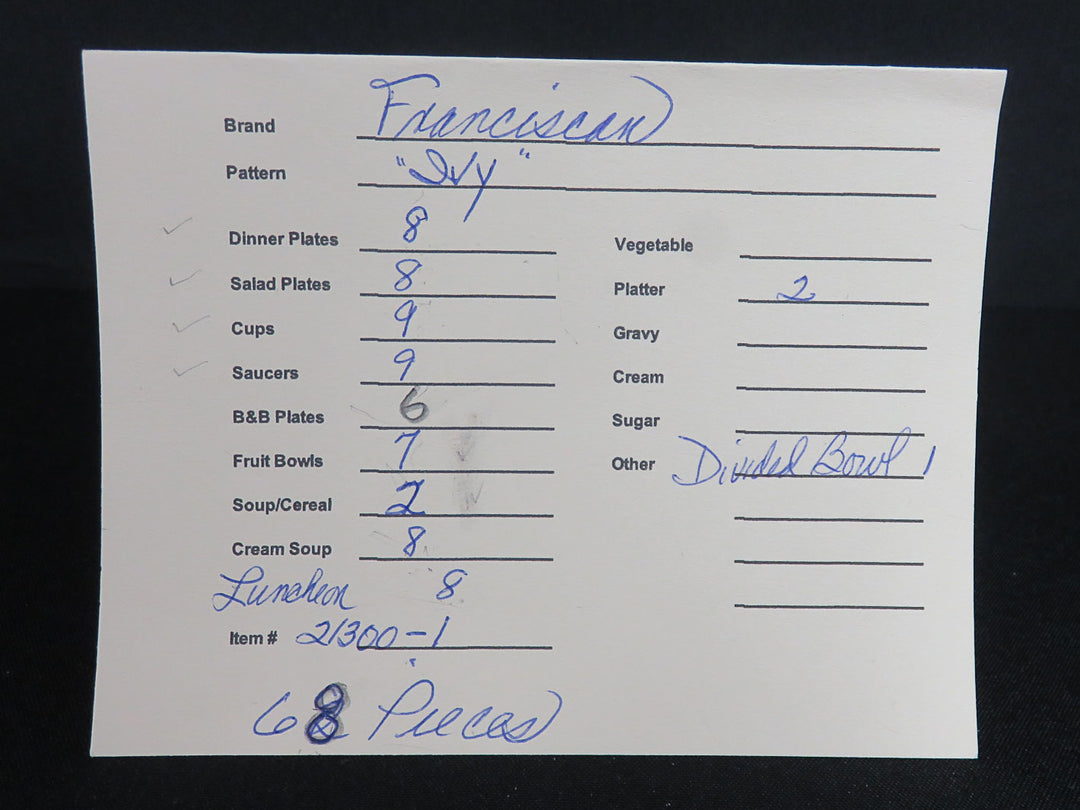 Brand Franciscan
Pattern "Ivy"
Dinner Plates 8
Salad Plates 8
Cups 9
Saucers 9
B&B Plates 6
Fruit Bowls 7
Soup/Cereal 2
Cream Soup 8
Luncheon 8
Item # 21300-1
68 Pieces
Vegetable
Platter 2
Gravy
Cream
Sugar
Other Divided Bowl 1